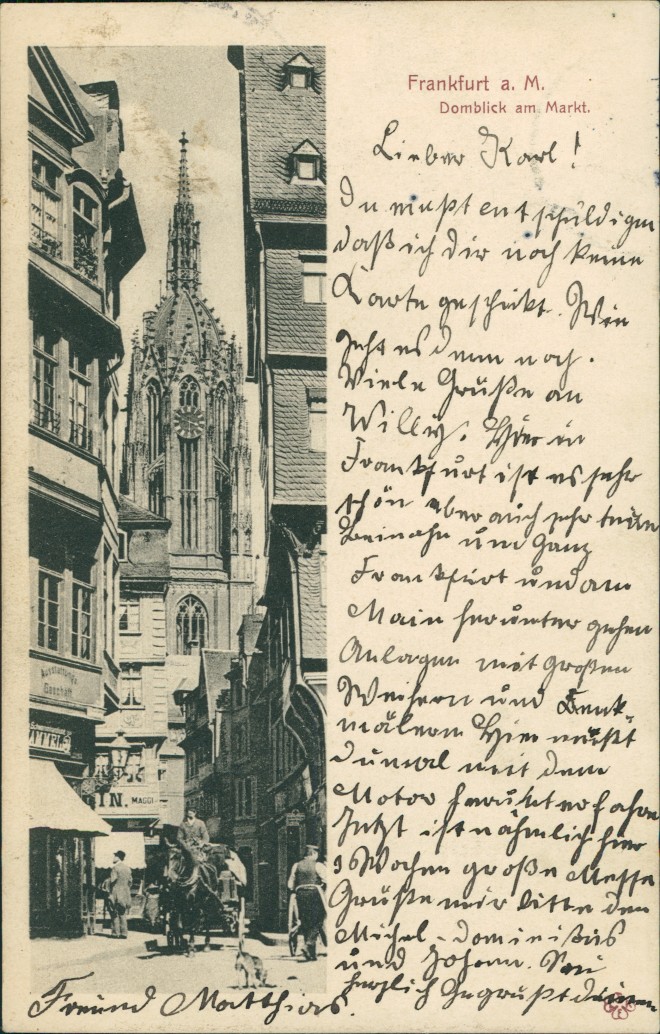 Frankfurt a. M.
Domblick am Markt.
Lieber Karl!
Du mußt entschuldigen
daß ich dir noch keine
Karte geschikt. Wie
geht es denn noch.
Viele Grüße an
Willy. Hier in
Frankfurt ist es sehr
schön aber auch sehr teuer
Beinahe um Ganz
Frankfurt und am
Main herunter gehen
Anlagen mit großen
Weihern und Denk-
mälern Hier mußt
du mal mit dem
Motor herunterfahren
Jetzt ist nähmlich hier
3 Wochen große Messe
Grüße mir bitte den
Michel - Dominikus
und Johann. Sei
herzlich Gegrüßt deinem
Freund Matthias.
Ausstattungs-
Geschäft
IN. MAGGI